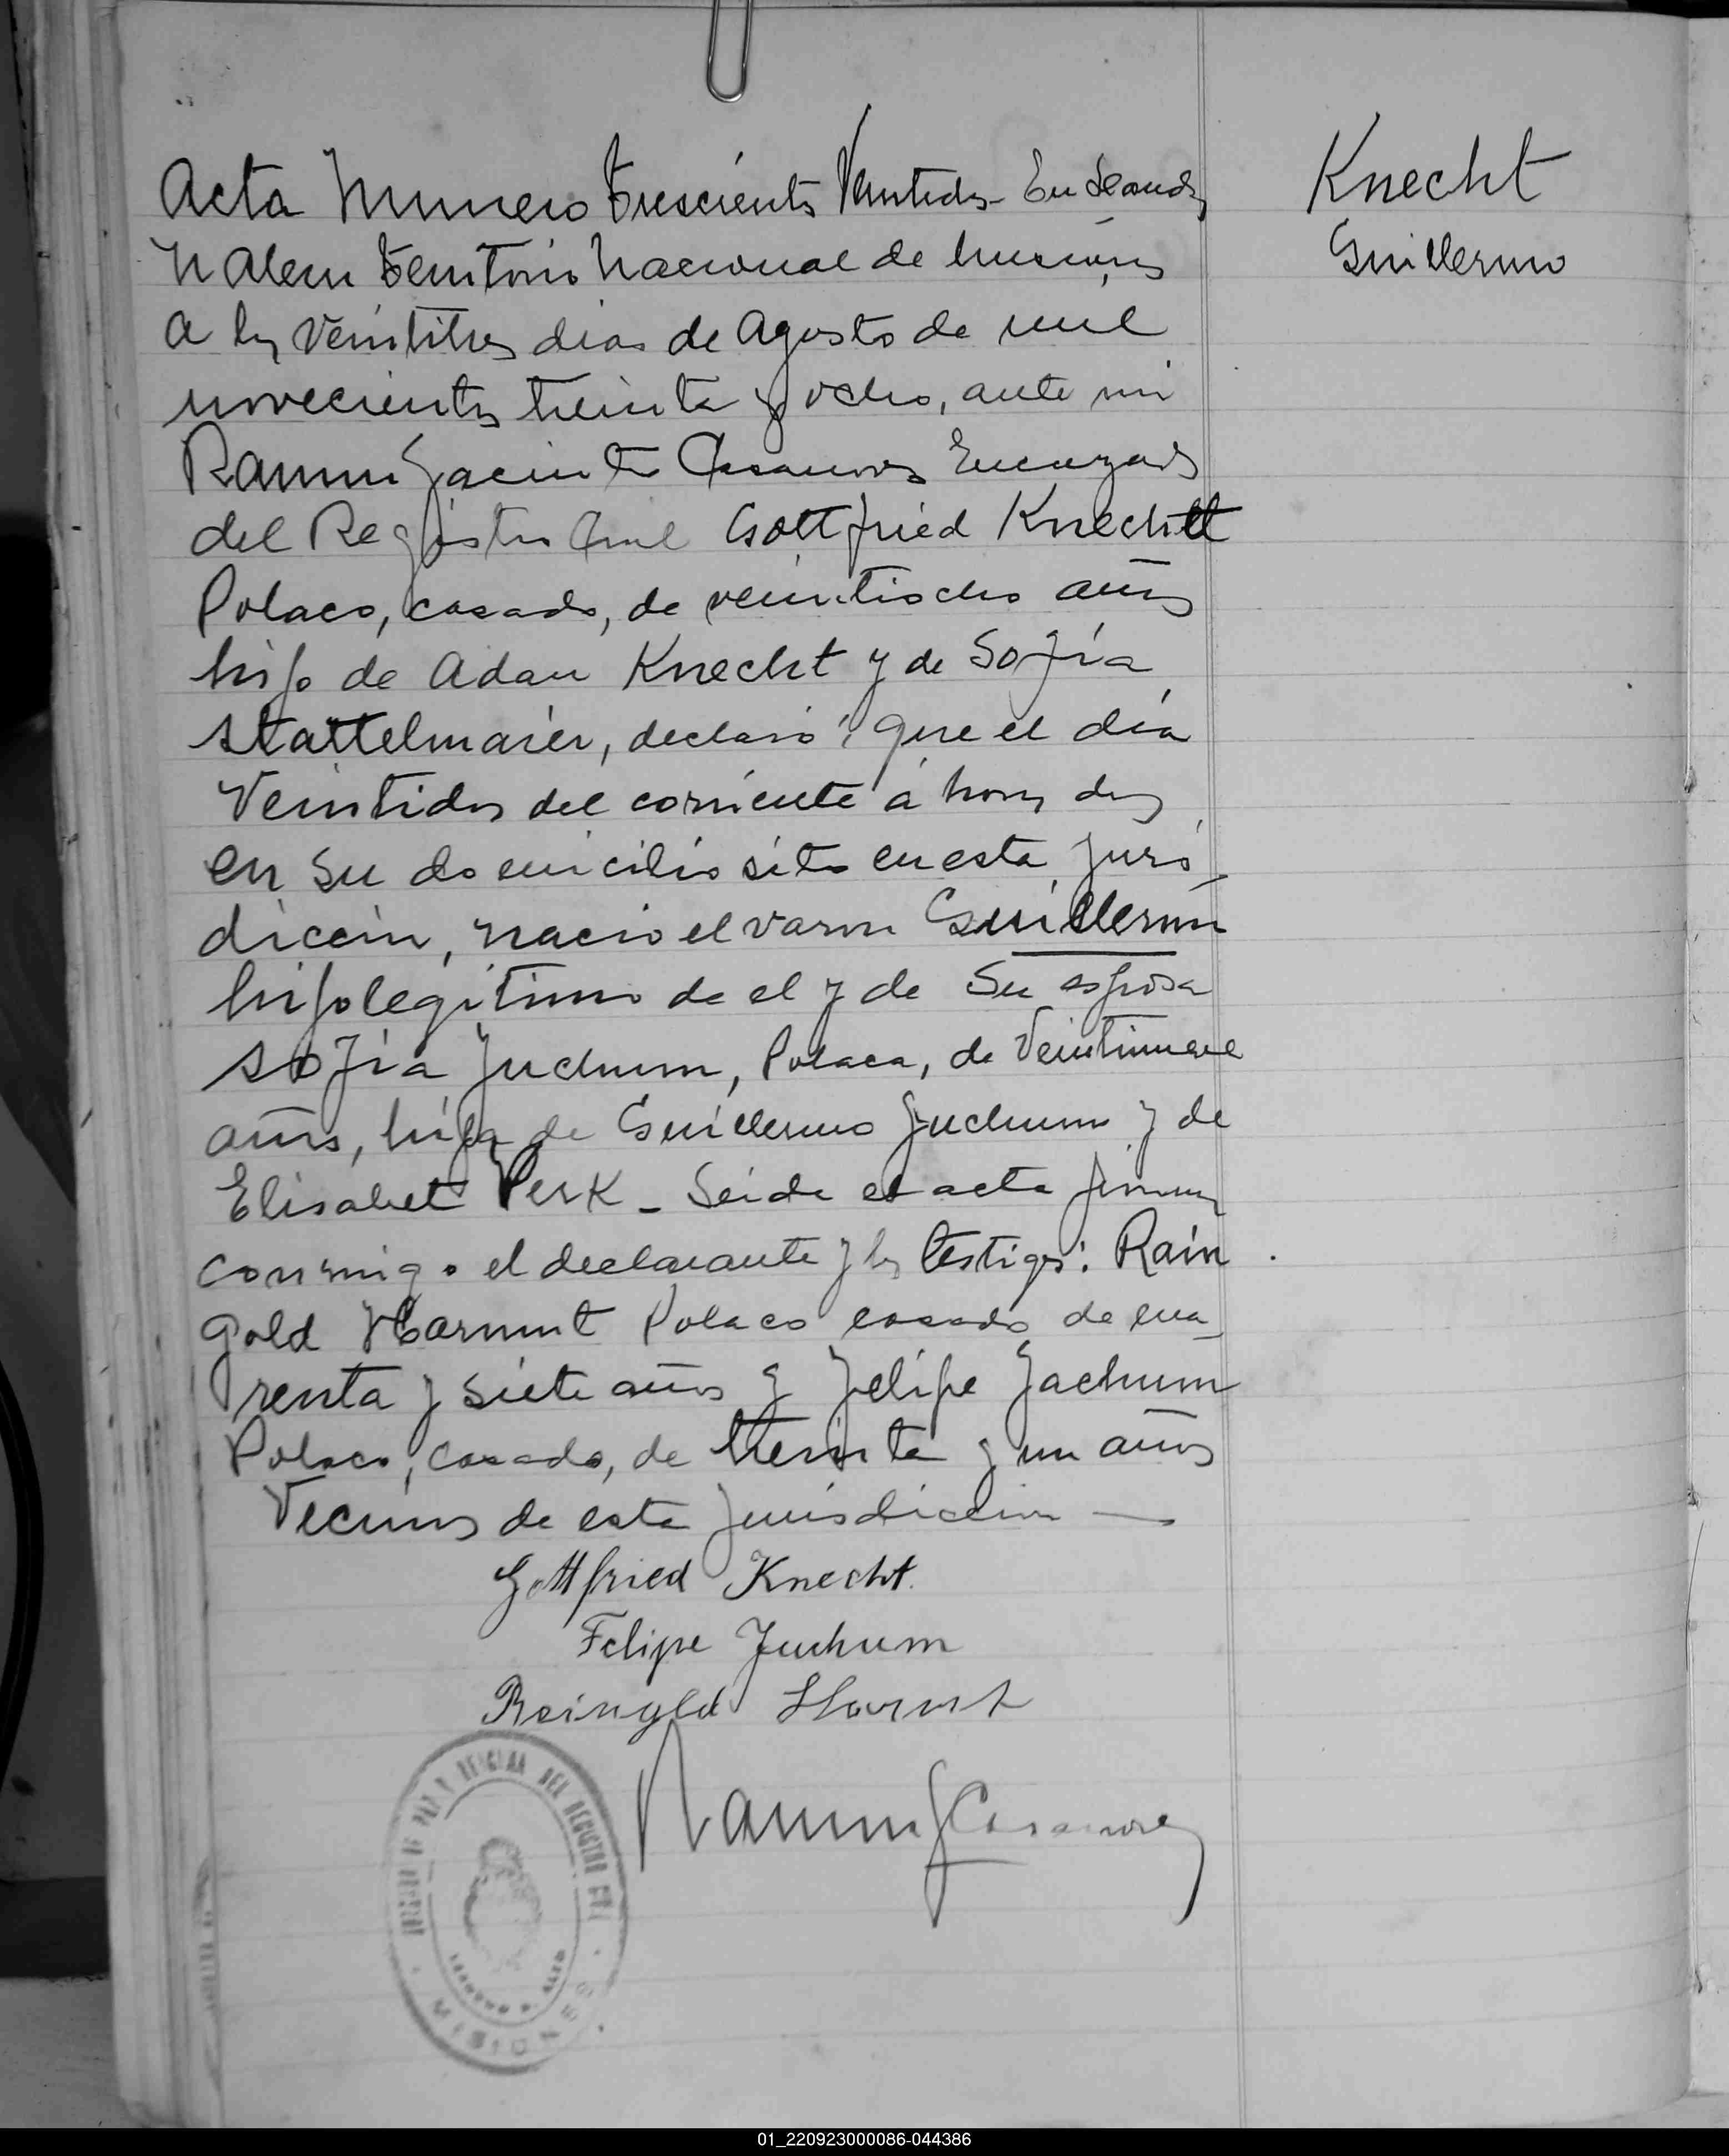 Acta Numero Trescientos Veintidos - En Leandro
N Alem Territorio Nacional de Misiones
a los Veintitres dias de Agosto de mil
novecientos treinta y ocho, ante mi
Ramon Jacinto Casanova Encargado
del Registro Civil Gottfried Knecht
Polaco, casado, de veintiocho años
hijo de Adan Knecht y de Sofia
Stattelmaier, declaró: que el dia
Veintidos del corriente á horas dos
en su domicilio sito en esta juris
diccion, nació el varon Guillermo
hijo legitimo de el y de su esposa
Sofia Juchum, Polaca, de Veintinueve
años, hija de Guillermo Juchum y de
Elisabet Perk - Leida el acta firman
conmigo el declarante y los testigos: Rain
gold Harmut Polaco casado de cua
renta y siete años y Felipe Jachum
Polaco, casado, de treinta y un años
Vecinos de esta jurisdiccion —
Gottfried Knecht.
Felipe Juchum
Reingold
Ramon J Casanova
Knecht
Guillermo
DE PAZ Y ENCARGADO DEL REGISTRO CIVIL
LEANDRO N. ALEM
MISIONES
01_220923000086-044386